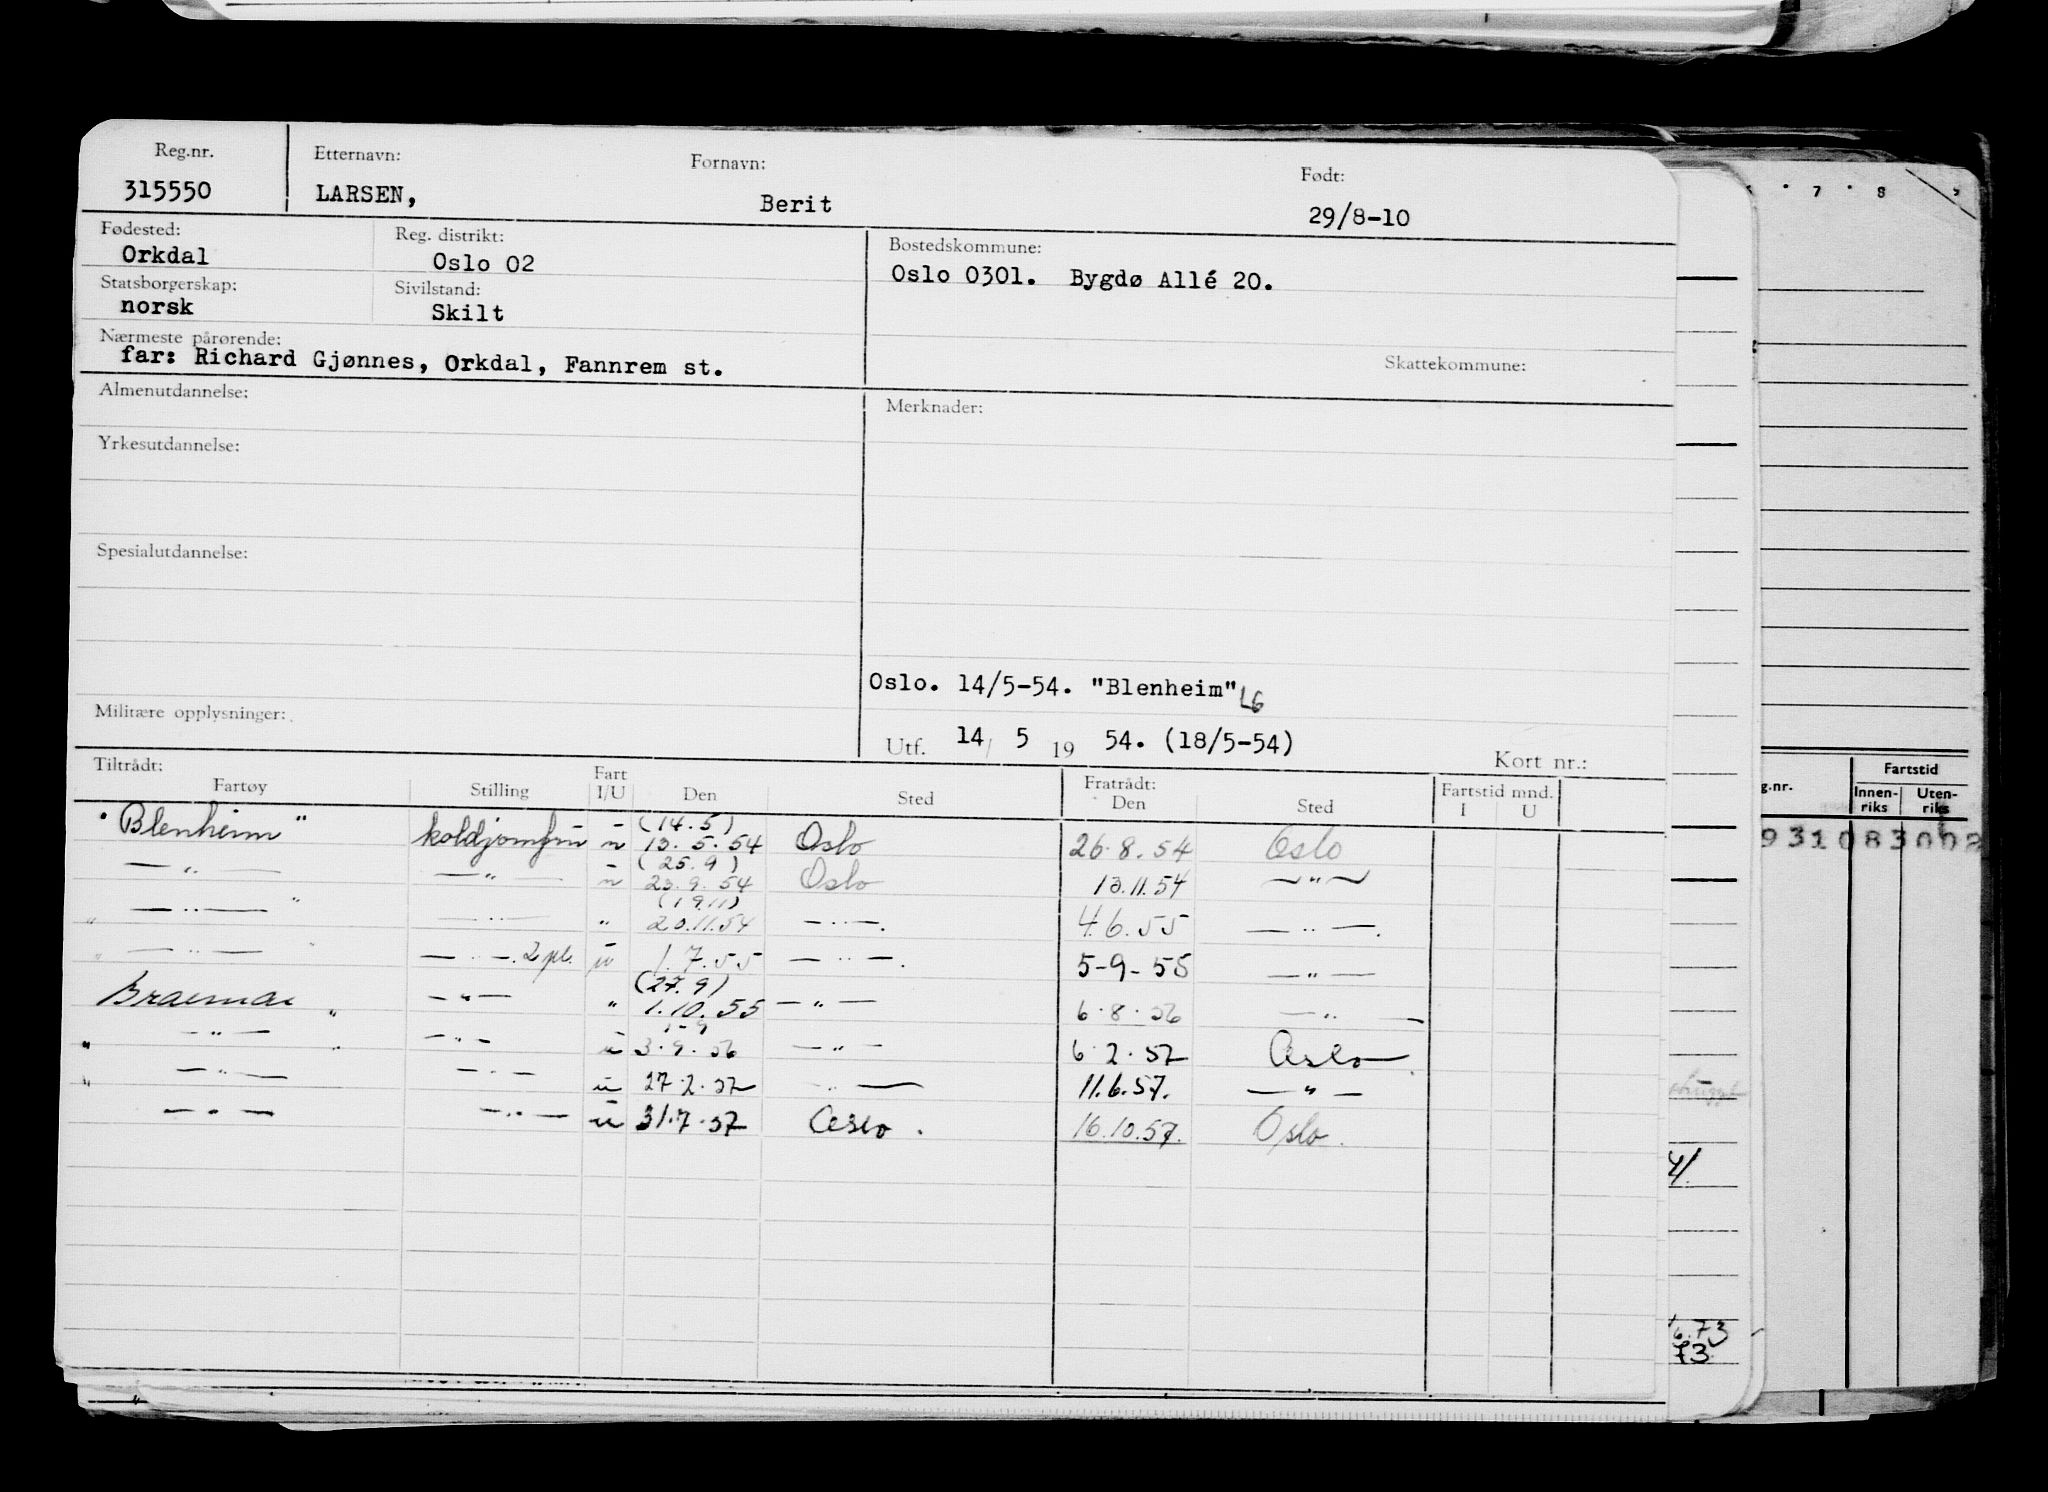 Reg.nr. Etternavn: Fornavn: Født:
315550 LARSEN, Berit 29/8-10
Fødested: Reg. distrikt: Bostedskommune:
Orkdal Oslo 02 Oslo 0301. Bygdø Allé 20.
Statsborgerskap: Sivilstand:
norsk Skilt
Nærmeste pårørende: Skattekommune:
far: Richard Gjønnes, Orkdal, Fannrem st.
Almenutdannelse: Merknader:
Yrkesutdannelse:
Spesialutdannelse:
Oslo. 14/5-54. "Blenheim" LG
Militære opplysninger:
Utf. 14/ 5 19 54. (18/5-54) Kort nr.:
Tiltrådt: Fart Fratrådt: Fartstid mnd.
Fartøy Stilling I/U Den Sted Den Sted I U
(14.5)
"Blenheim" koldjomfru u 15.5.54 Oslo 26.8.54 Oslo
(25.9)
— " — — " — u 23.9.54 Oslo 13.11.54 — " —
(19.11)
" — " — " — " — " 20.11.54 — " —. 4.6.55 — " —.
" — " — " — " —. 2 pl. u 1.7.55 — " —. 5-9-55 — " —
(27.9)
Braemar " — " — " 1.10.55 — " — 6.8.56 — " —
1-9
" — " — " — " — u 3.9.56 — " — 6.2.57 Oslo.
" — " — — " — u 27.2.57 " — 11.6.57. — " —
— " — — " — u 31.7.57 Oslo. 16.10.57. Oslo.
7 8
g.nr. Fartstid
Innen-riks Uten-riks
931083002
6.73
73